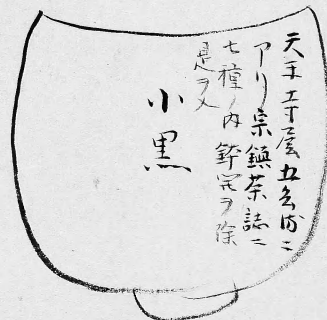 天王寺屋五兵衛ニ
アリ宗鎮茶誌ニ
七種ノ内鉢開ヲ除
是ヲ入
小黒